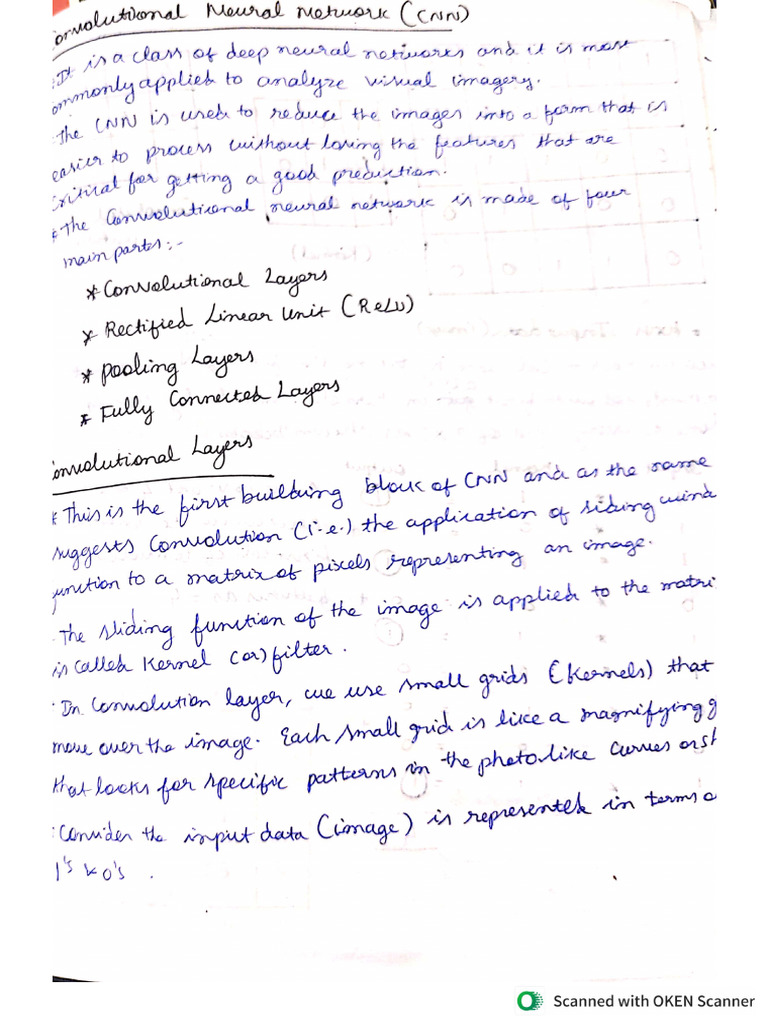 onvolutional Neural Network (CNN)
It is a class of deep neural networks and it is most
ommonly applied to analyze visual imagery.
The CNN is used to reduce the images into a form that is
easier to process without losing the features that are
critical for getting a good prediction.
* The Convolutional neural network is made of four
main parts:-
* Convolutional Layers
* Rectified Linear Unit (ReLU)
* Pooling Layers
* Fully Connected Layers
onvolutional Layers
* This is the first building block of CNN and as the name
suggests Convolution (i.e.) the application of sliding wind
function to a matrix of pixels representing an image.
. The sliding function of the image is applied to the matri
is called Kernel (or) filter.
. In Convolution layer, we use small grids (kernels) that
move over the image. Each small grid is like a magnifying g
that looks for specific patterns in the photo like curves or
. Consider the input data (image) is represented in terms o
1's & 0's .
Scanned with OKEN Scanner